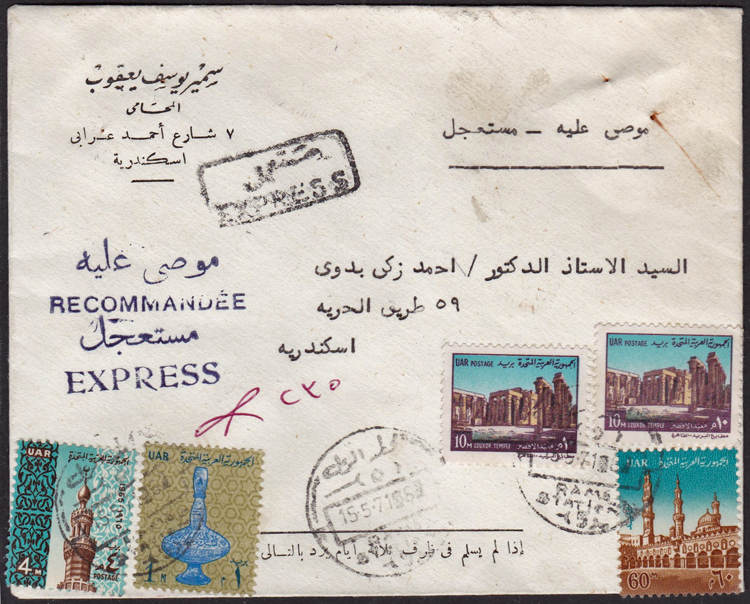 سمير يوسف يعقوب
المحامى
٧ شارع أحمد عرابى
اسكندرية
موصى عليه - مستعجل
مستعجل
EXPRESS
السيد الاستاذ الدكتور / احمد زكى بدوى
٥٩ طريق الحريه
اسكندريه
موصى عليه
RECOMMANDÉE
مستعجل
EXPRESS
UAR POSTAGE بريد الجمهورية العربية المتحدة
10M LOUXOR TEMPLE معبد الاقصر ١٠م
UAR POSTAGE بريد الجمهورية العربية المتحدة
10M LOUXOR TEMPLE معبد الاقصر ١٠م
UAR
الجمهورية العربية المتحدة
4M
POSTAGE
٤
UAR
الجمهورية العربية المتحدة
1M
١م
15-5-71
STATION
UAR
الجمهورية العربية المتحدة
60M
٦٠م
إذا لم يسلم فى ظرف ثلاثة أيام يرد بالتالى